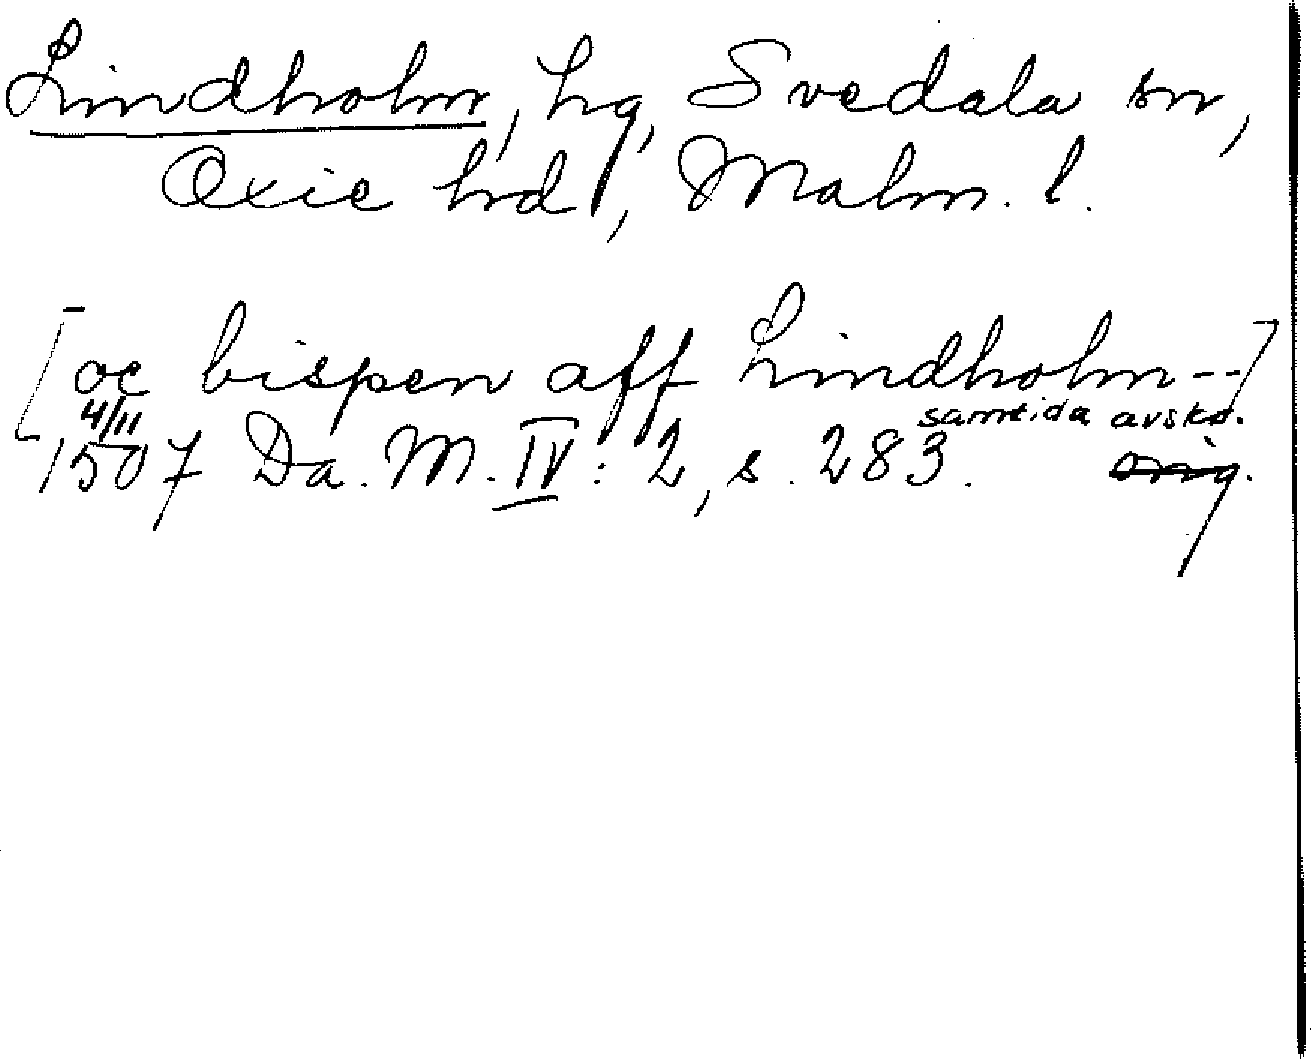 Lindholm, hg, Svedala sn,
Oxie hrd, Malm. l.
[oc bispen aff Lindholm--]
4/11 samtida avskr.
1507 Da. M. IV: 2, s. 283. orig.